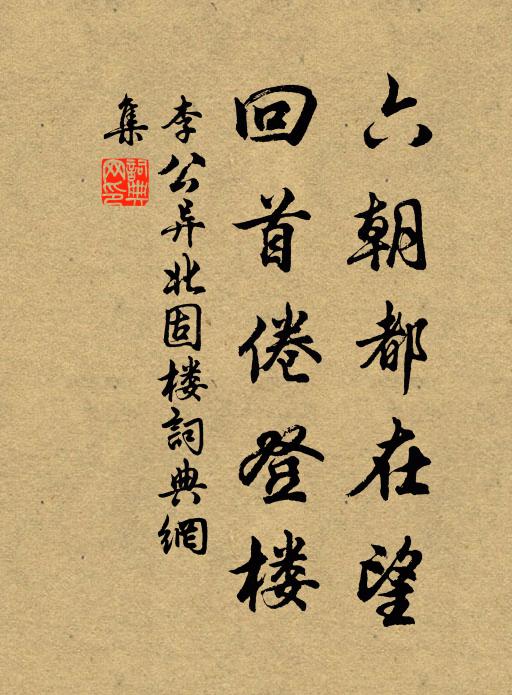 六朝都在望
回首倦登楼
李公异北固楼詞典網
集
詞典網印